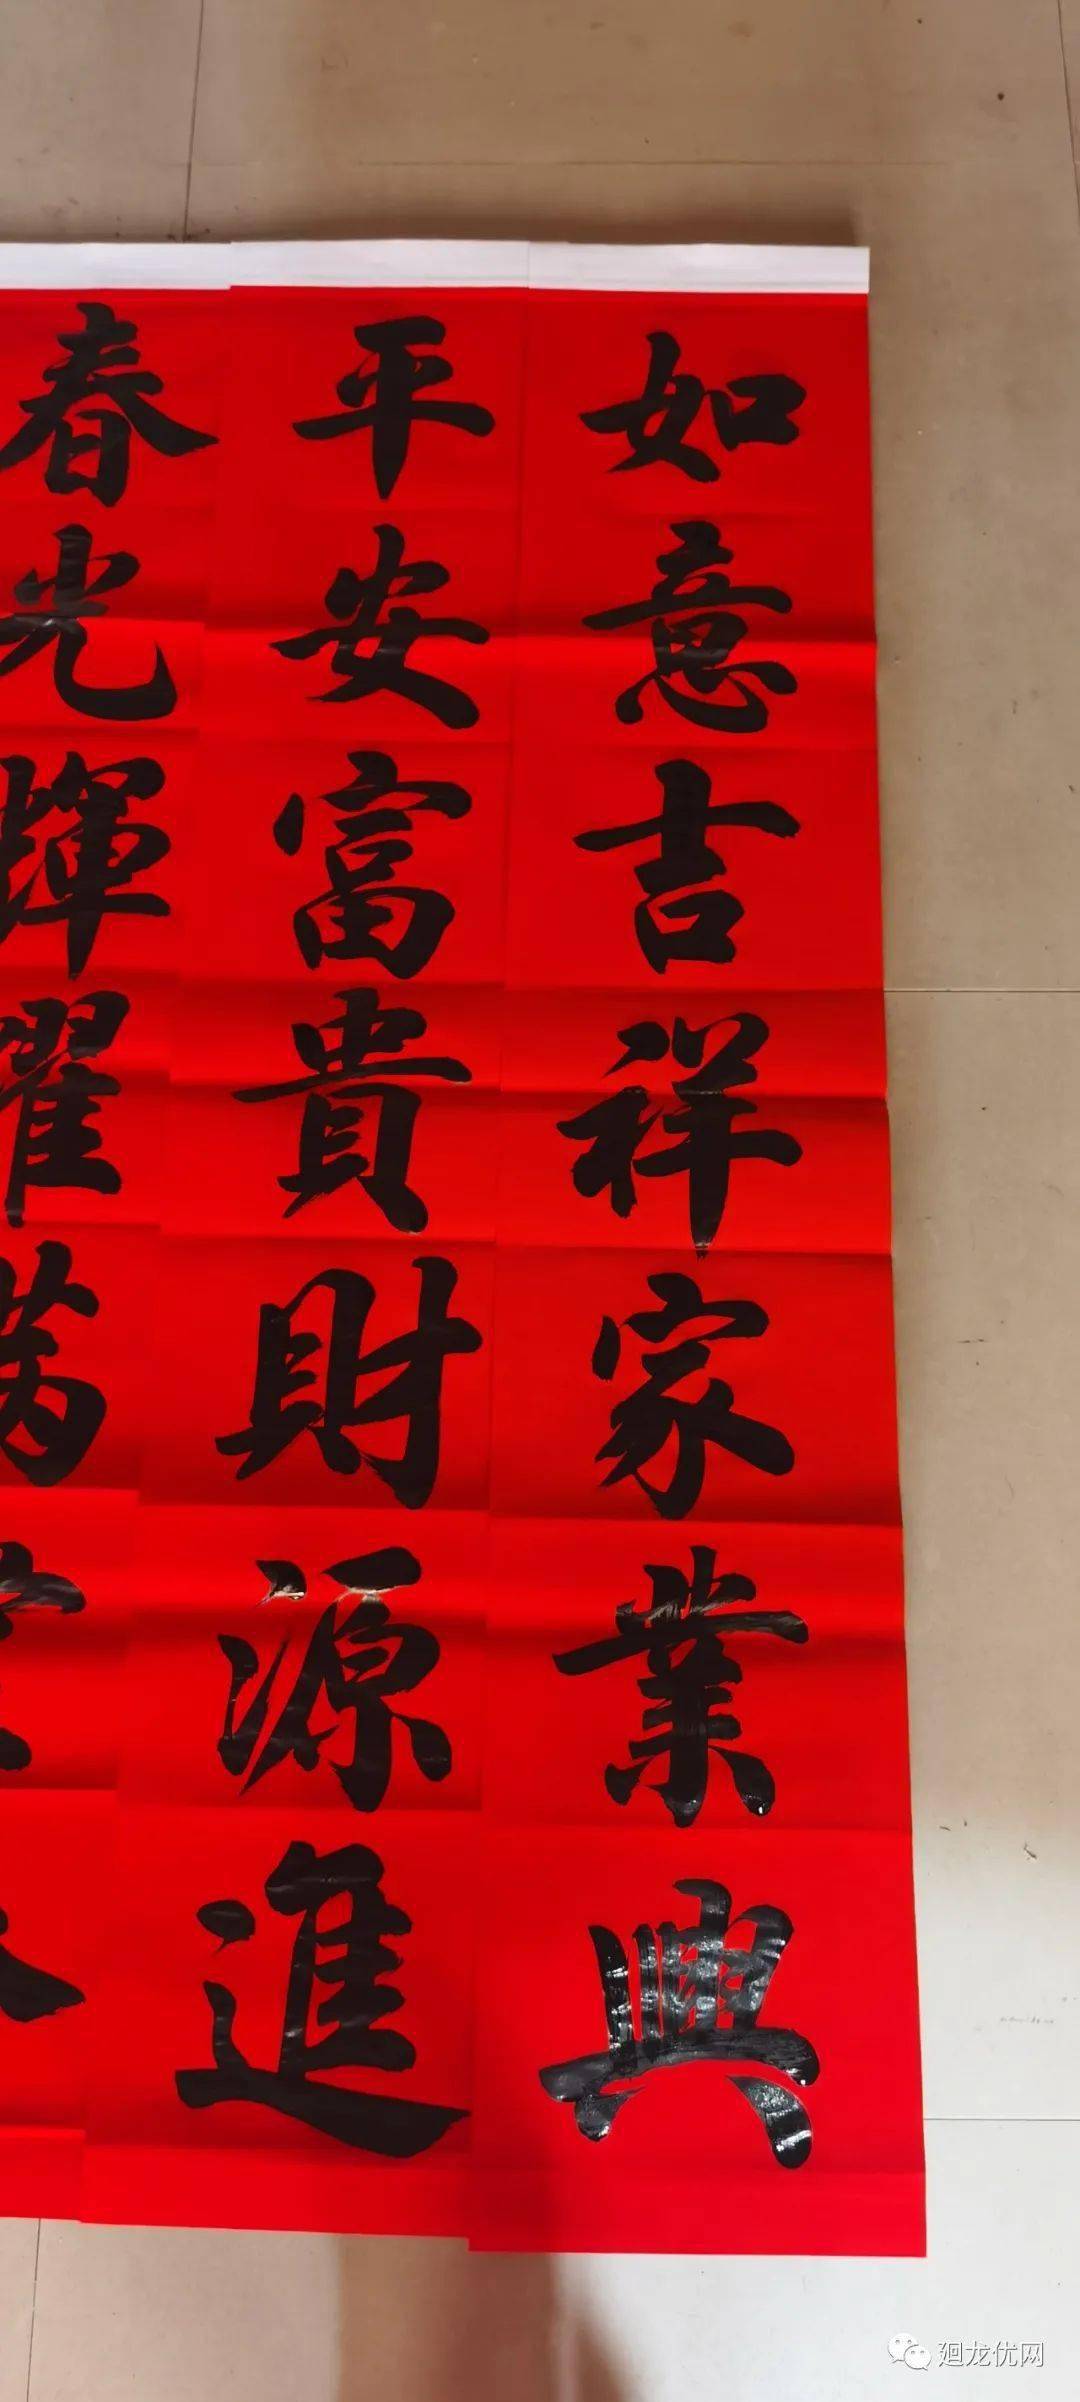 如意吉祥家業興
平安富貴財源進
春光輝耀满
廻龙优网